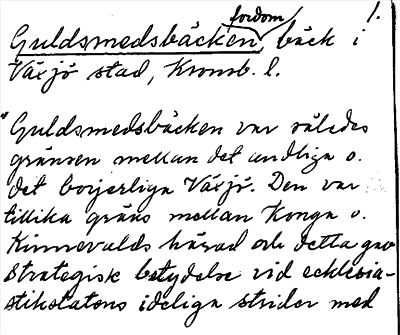 1.
fordom
Guldsmedsbäcken, bäck i
Växjö stad, Kronob. l.
"Guldsmedsbäcken var således
gränsen mellan det andliga o.
det borjerliga Växjö. Den var
tillika gräns mellan Konga o.
Kinnevalds härad och detta gav
strategisk betydelse vid ecklesia-
stikstatens ideliga strider med